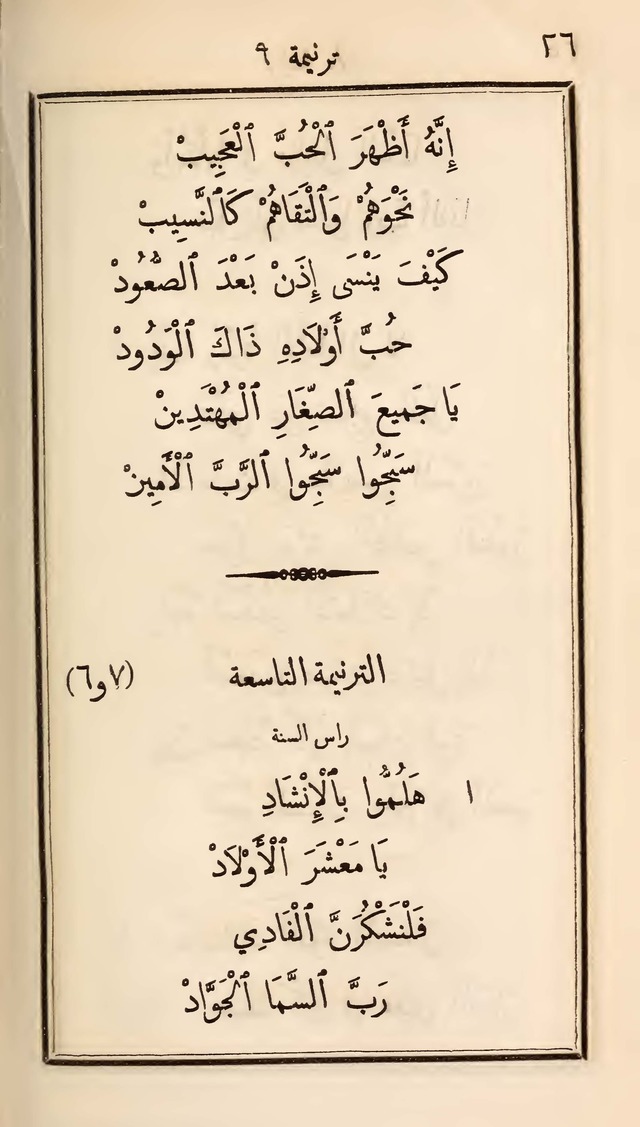 ٢٦
ترنيمة ٩
إِنَّهُ أَظْهَرَ ٱلْحُبَّ ٱلْعَجِيبْ
نَحْوَهُمْ وَٱلْتَقَاهُمْ كَٱلنَّسِيبْ
كَيْفَ يَنْسَى إِذَنْ بَعْدَ ٱلصُّعُودْ
حُبَّ أَوْلَادِهِ ذَاكَ ٱلْوَدُودْ
يَا جَمِيعَ ٱلصِّغَارِ ٱلْمُهْتَدِينْ
سَبِّحُوا سَبِّحُوا ٱلرَّبَّ ٱلْأَمِينْ
الترنيمة التاسعة (٧ و٦)
راس السنة
١ هَلُمُّوا بِٱلْإِنْشَادِ
يَا مَعْشَرَ ٱلْأَوْلَادْ
فَلْنَشْكُرَنَّ ٱلْفَادِي
رَبَّ ٱلسَّمَا ٱلْجَوَّادْ